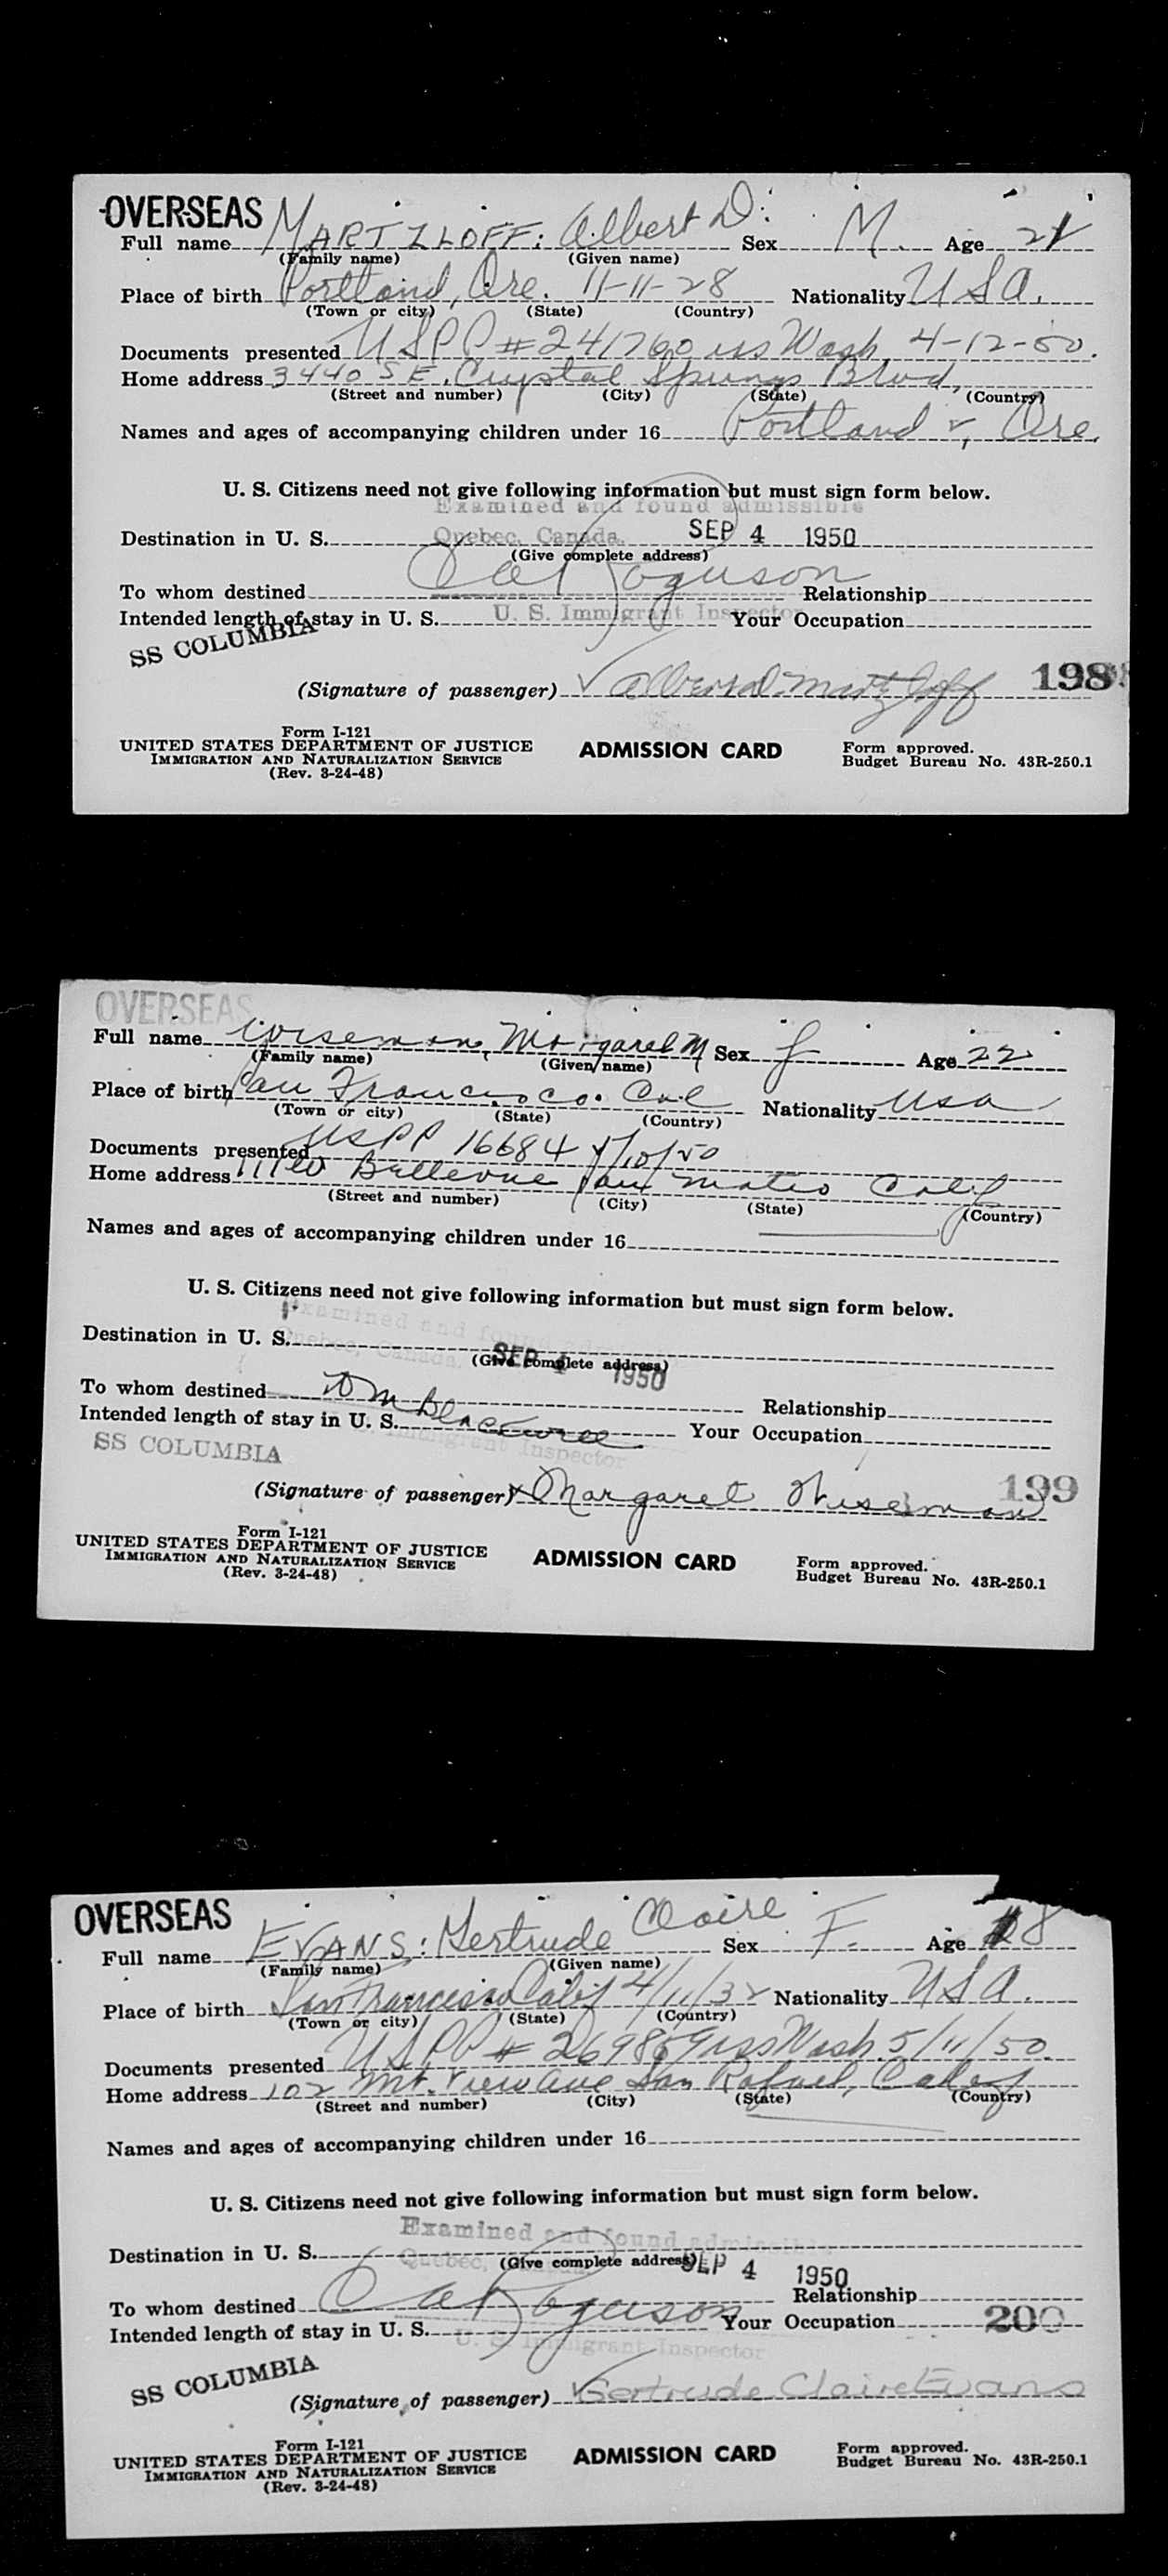 OVERSEAS
Full name MARTZLOFF: Albert D. Sex M. Age 21
(Family name) (Given name)
Place of birth Portland, Ore. 11-11-28 Nationality USA.
(Town or city) (State) (Country)
Documents presented USPP #241760 iss Wash. 4-12-50.
Home address 3440 S E. Crystal Springs Blvd,
(Street and number) (City) (State) (Country)
Names and ages of accompanying children under 16 Portland, Ore.
U. S. Citizens need not give following information but must sign form below.
Examined and found admissible
Destination in U. S. Quebec, Canada. SEP 4 1950
(Give complete address)
To whom destined Relationship
Intended length of stay in U. S. U. S. Immigrant Inspector Your Occupation
SS COLUMBIA
(Signature of passenger) Albert D. Martzloff 198
Form I-121
UNITED STATES DEPARTMENT OF JUSTICE
IMMIGRATION AND NATURALIZATION SERVICE
(Rev. 3-24-48)
ADMISSION CARD
Form approved.
Budget Bureau No. 43R-250.1
OVERSEAS
Full name Wiseman, Margaret M Sex f Age 22
(Family name) (Given name)
Place of birth San Francisco. Cal Nationality USA
(Town or city) (State) (Country)
Documents presented USPP 16684 /10/50
Home address 111 W Bellevue San Mateo Calif
(Street and number) (City) (State) (Country)
Names and ages of accompanying children under 16
U. S. Citizens need not give following information but must sign form below.
Examined and found
Destination in U. S. Quebec, Canada. SEP 4 1950
(Give complete address)
To whom destined Relationship
Intended length of stay in U. S. Immigrant Inspector Your Occupation
SS COLUMBIA
(Signature of passenger) x Margaret Wiseman 199
Form I-121
UNITED STATES DEPARTMENT OF JUSTICE
IMMIGRATION AND NATURALIZATION SERVICE
(Rev. 3-24-48)
ADMISSION CARD
Form approved.
Budget Bureau No. 43R-250.1
OVERSEAS
Full name EVANS: Gertrude Claire Sex F. Age 18
(Family name) (Given name)
Place of birth San Francisco Calif 4/11/32 Nationality USA.
(Town or city) (State) (Country)
Documents presented USPP # iss Wash. 5/11/50.
Home address 102 Mt. View ave San Rafael, Calif
(Street and number) (City) (State) (Country)
Names and ages of accompanying children under 16
U. S. Citizens need not give following information but must sign form below.
Examined and found admissible
Destination in U. S. Quebec, SEP 4 1950
(Give complete address)
To whom destined Relationship
Intended length of stay in U. S. U. S. Immigrant Inspector Your Occupation 200
SS COLUMBIA
(Signature of passenger) Gertrude Claire Evans
Form I-121
UNITED STATES DEPARTMENT OF JUSTICE
IMMIGRATION AND NATURALIZATION SERVICE
(Rev. 3-24-48)
ADMISSION CARD
Form approved.
Budget Bureau No. 43R-250.1